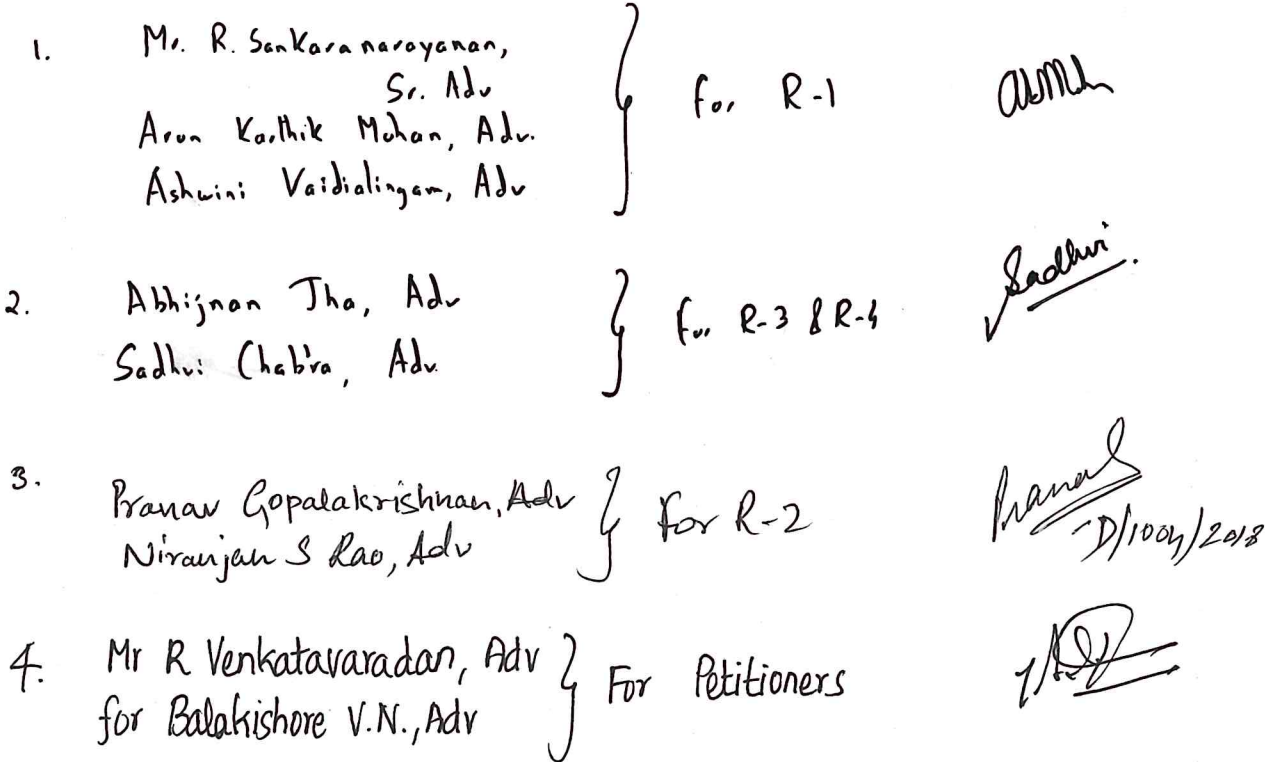 1. Mr. R. Sankaranarayanan,
Sr. Adv
Arun Karthik Mohan, Adv.
Ashwini Vaidialingam, Adv
} For R-1
2. Abhijnan Jha, Adv
Sadhvi Chabra, Adv.
} For R-3 & R-4
Sadhvi.
3. Pranav Gopalakrishnan, Adv
Niranjan S Rao, Adv
} For R-2
Pranav
D/1004/2018
4. Mr R Venkatavaradan, Adv
for Balakishore V.N., Adv
} For Petitioners